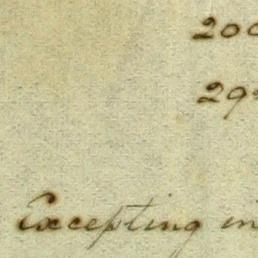 200
29
Excepting in